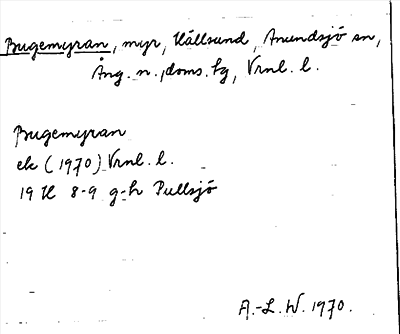 Bugemyran, myr, Hällsund, Anundsjö sn,
Ång. n., doms. hg, Vrnl. l.
Bugemyran
ek (1970) Vrnl. l.
19 H 8-9 g-h Pullsjö
A.-L. W. 1970.